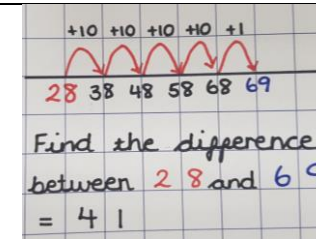 +10 +10 +10 +10 +1
28 38 48 58 68 69
Find the difference
between 28 and 6
= 41